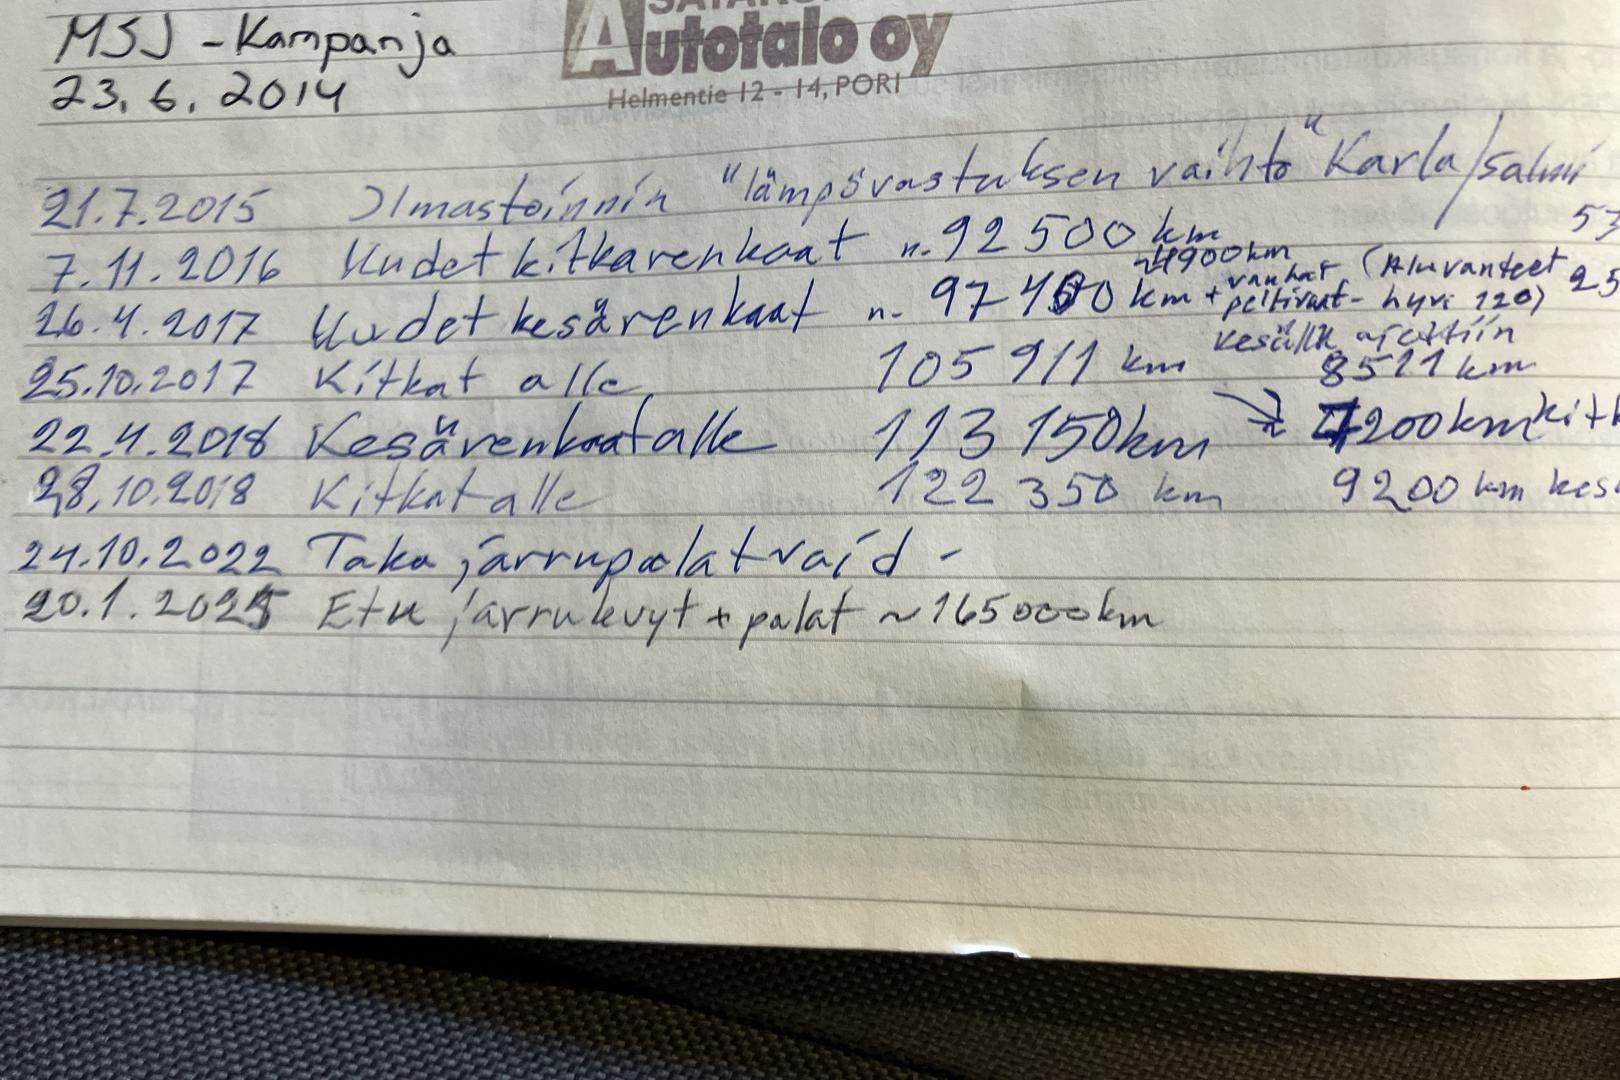 MSJ - Kampanja
23.6.2014
Autotalo oy
Helmentie 12 - 14, PORI
21.7.2015 Ilmastoinnin "lämpövastuksen vaihto" Karla/Salmi
53
7.11.2016 Uudet kitkarenkaat n. 92 500 km
~4900km
26.4.2017 Uudet kesärenkaat n. 97 400 km + vanhat peltivant- (Aluvanteet hyvi 120) 25
kesällä ajettiin
25.10.2017 Kitkat alle 105 911 km 8511 km
22.4.2018 Kesärenkaat alle 113 150km → 7200km kitk
28.10.2018 Kitkat alle 122 350 km 9200 km kes
24.10.2022 Taka jarrupalat vaid -
20.1.2025 Etu jarrulevyt + palat ~165000km